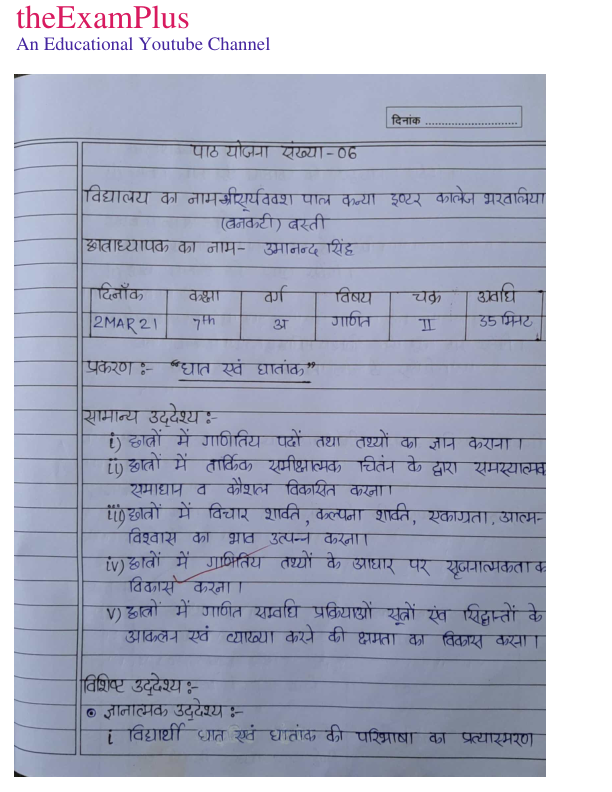 theExamPlus
An Educational Youtube Channel
दिनांक ............................
पाठ योजना संख्या - 06
विद्यालय का नाम- श्री सूर्यवक्श पाल कन्या इण्टर कालेज भरवालिया
(बनकटी) बस्ती
छात्राध्यापक का नाम- उमानन्द सिंह
दिनाँक कक्षा वर्ग विषय चक्र अवधि
2MAR21 7th अ गणित II 35 मिनट
प्रकरण :- "घात एवं घातांक"
सामान्य उद्देश्य :-
i) छात्रों में गाणितिय पदों तथा तथ्यों का ज्ञान कराना।
ii) छात्रों में तार्किक समीक्षात्मक चिंतन के द्वारा समस्यात्मक
समाधान व कौशल विकसित करना।
iii) छात्रों में विचार शक्ति, कल्पना शक्ति, एकाग्रता, आत्म-
विश्वास का भाव उत्पन्न करना।
iv) छात्रों में गाणितिय तथ्यों के आधार पर सृजनात्मकता क
विकास करना।
v) छात्रों में गणित सम्बधि प्रक्रियाओं सूत्रों एंव सिद्धान्तों के
आकलन एवं व्याख्या करने की क्षमता का विकास करना।
विशिष्ट उद्देश्य :-
⊙ ज्ञानात्मक उद्देश्य :-
i विद्यार्थी घात एवं घातांक की परिभाषा का प्रत्यास्मरण